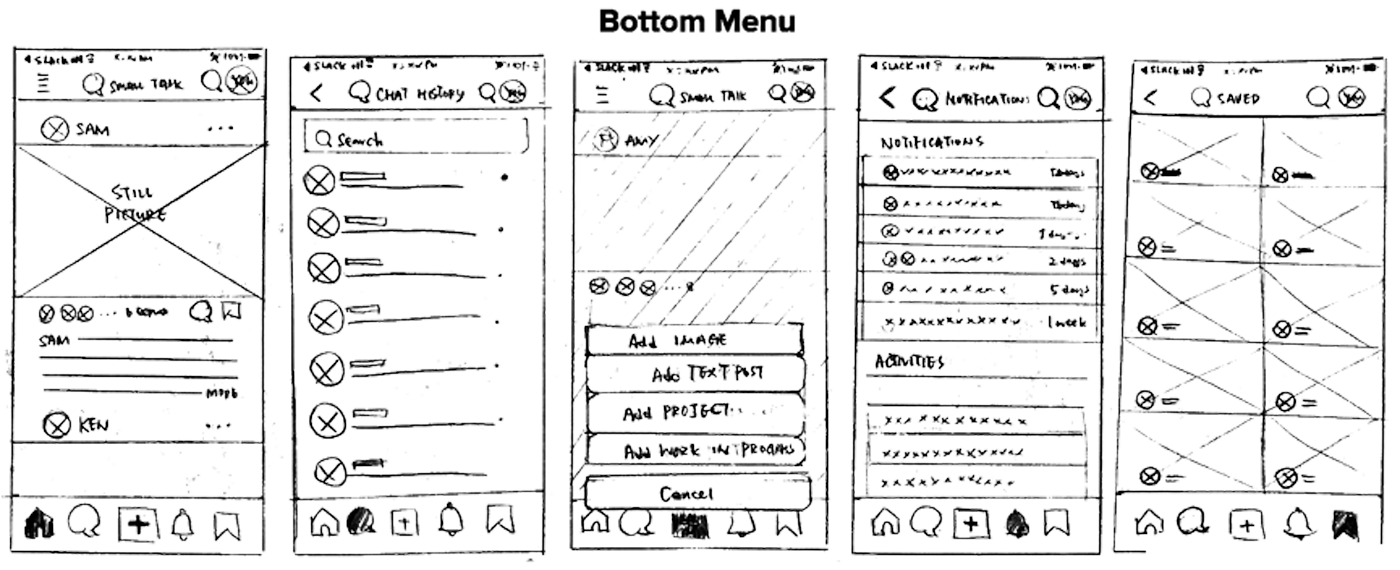 Bottom Menu
SLACK
SMALL TALK
SAM
STILL
PICTURE
SAM
MORE
KEN
SLACK
CHAT HISTORY
Search
SLACK
SMALL TALK
AMY
... 8
Add IMAGE
Add TEXT POST
Add PROJECT
Add WORK IN PROGRESS
Cancel
SLACK
NOTIFICATIONS
NOTIFICATIONS
xxxxxxxxxxxx Today
xxxxxxxxxx Today
xxxxxxxxxx
xxxxxxxxx 2 days
xxxxxxxxxxx 5 days
xxxxxxxxxxxxx 1 week
ACTIVITIES
xxx xxxxxxxxx
xxxxxxxxxxxxx
xxxxxxxxxxxx
SLACK
SAVED